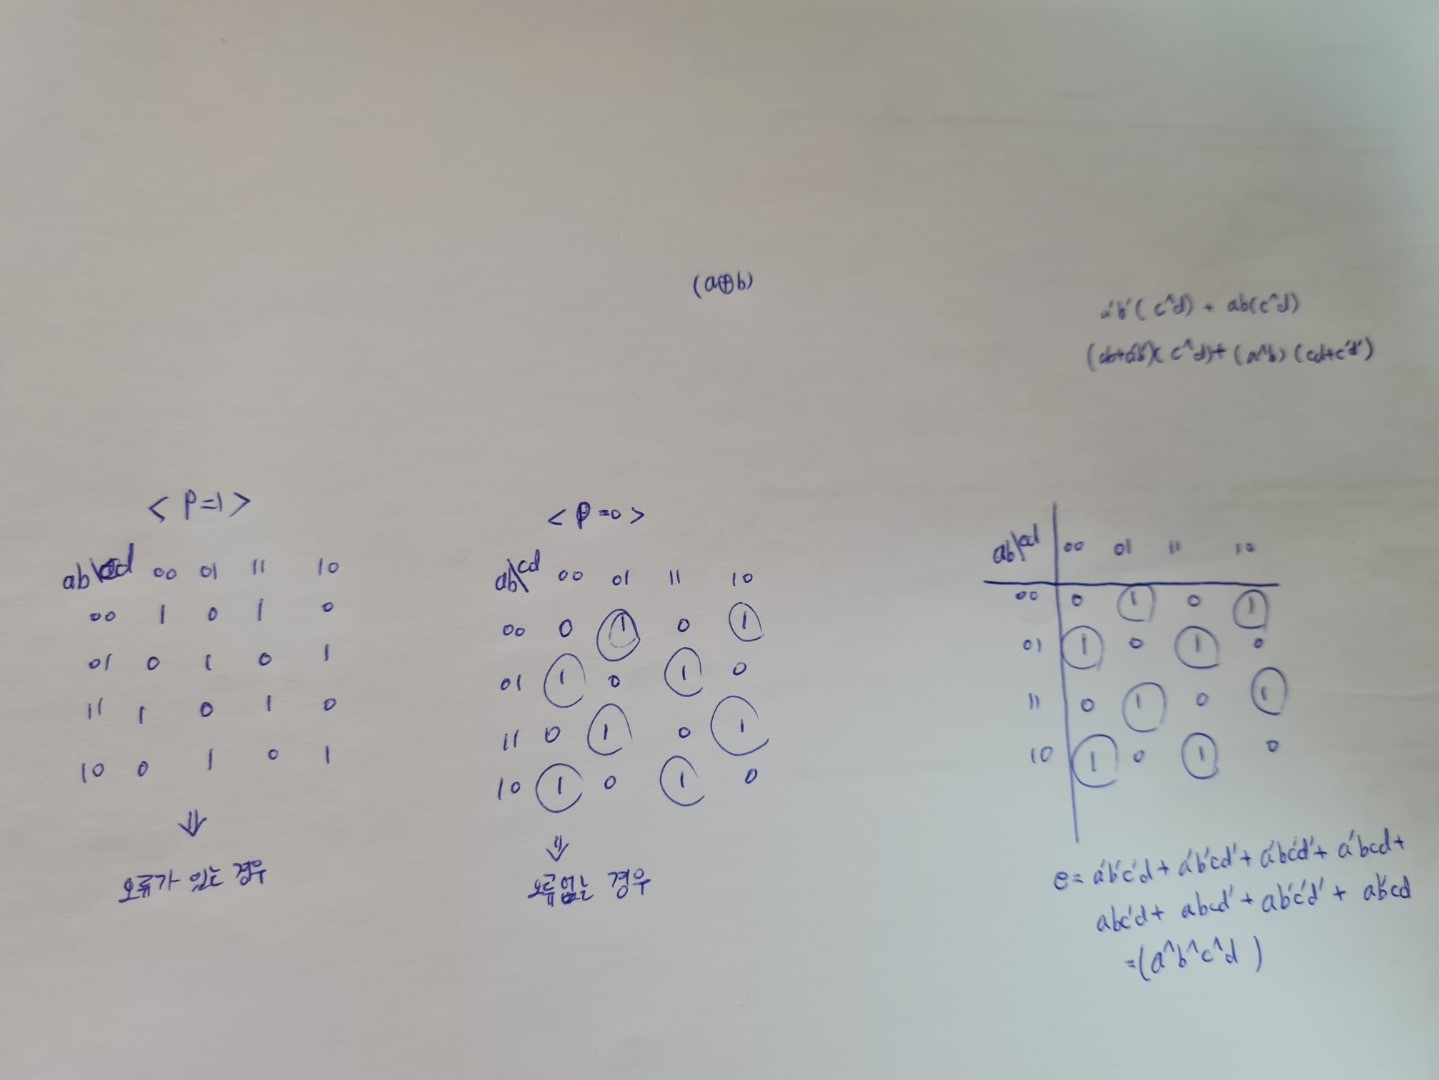 (a⊕b)
a'b'(c^d) + ab(c^d)
(ab+a'b')(c^d)+(a^b)(cd+c'd')
<P=1>
ab\cd 00 01 11 10
00 1 0 1 0
01 0 1 0 1
11 1 0 1 0
10 0 1 0 1
⇓
오류가 있는 경우
<P=0>
ab\cd 00 01 11 10
00 0 1 0 1
01 1 0 1 0
11 0 1 0 1
10 1 0 1 0
⇓
오류없는 경우
ab\cd 00 01 11 10
00 0 1 0 1
01 1 0 1 0
11 0 1 0 1
10 1 0 1 0
e= a'b'c'd + a'b'cd' + a'bc'd' + a'bcd+
abc'd + abcd' + ab'c'd' + ab'cd
=(a^b^c^d)